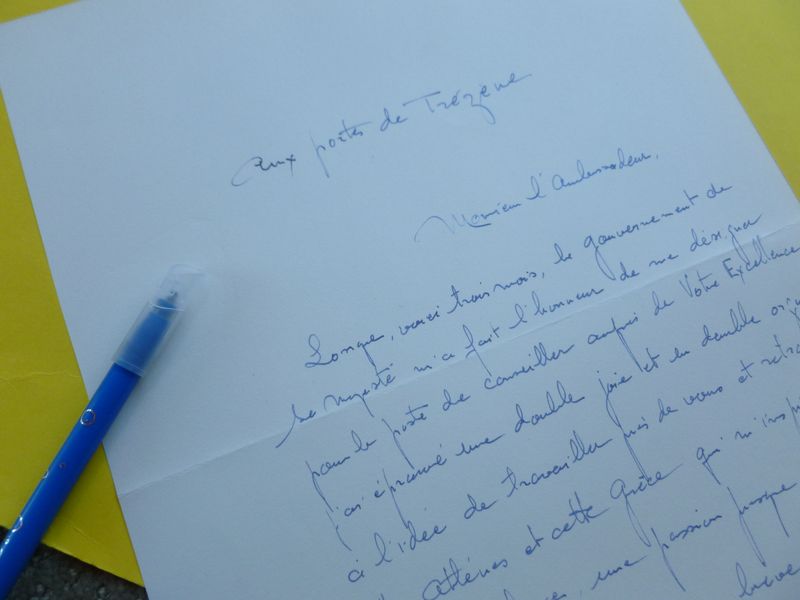 Aux portes de Trézène
Monsieur l'Ambassadeur,
Lorsque, voici trois mois, le gouvernement de
Sa Majesté m'a fait l'honneur de me désigner
pour le poste de conseiller auprès de Votre Excellence
j'ai éprouvé une double joie et en double
à l'idée de travailler près de vous et
Athènes et cette Grèce qui
une passion presque